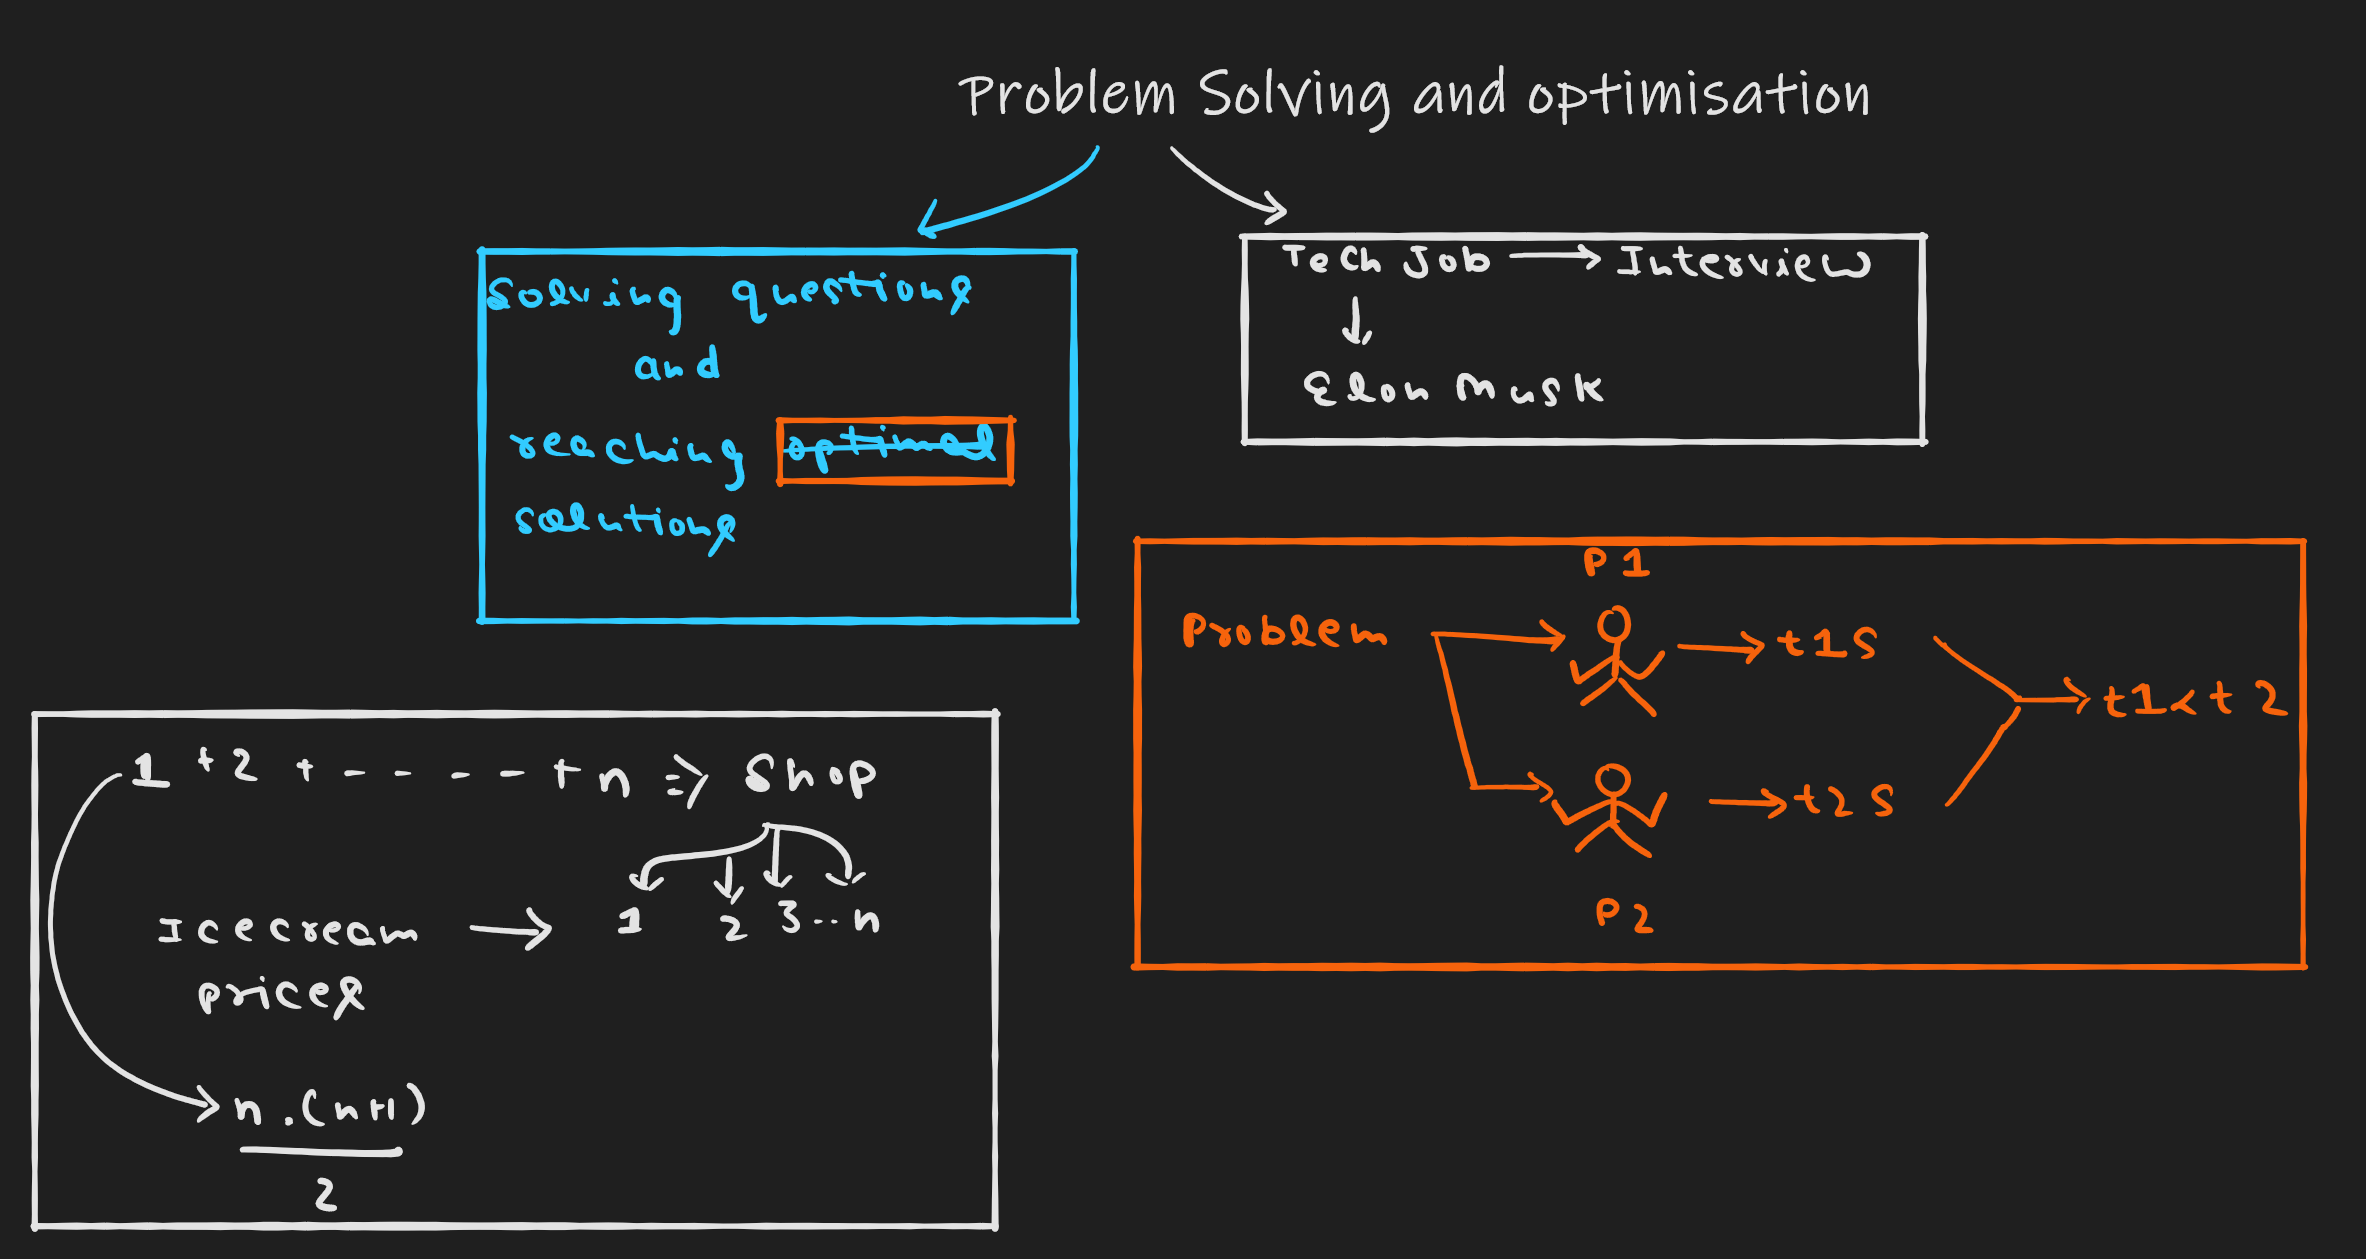 Problem Solving and optimisation
Solving questions
and
reaching optimal
solutions
Tech Job → Interview
↓
Elon Musk
P1
Problem → t1s
→ t1 < t2
→ t2s
P2
1 + 2 + - - - - + n => Shop
1 2 3 .. n
Icecream →
prices
n.(n+1)
2